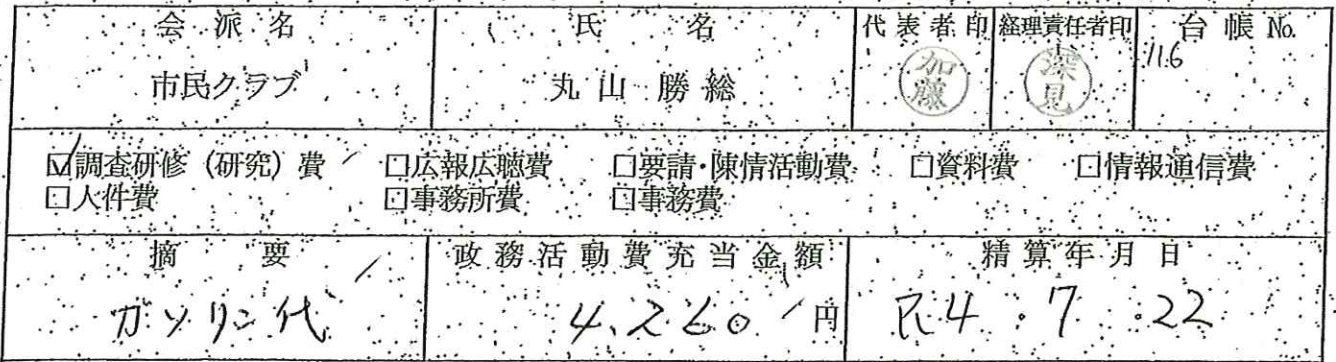 会派名 氏名 代表者印 経理責任者印 台帳No.
市民クラブ 丸山勝総 加藤 深見 116
☑調査研修(研究)費 □広報広聴費 □要請・陳情活動費 □資料費 □情報通信費
□人件費 □事務所費 □事務費
摘要 政務活動費充当金額 精算年月日
ガソリン代 4,260円 R4.7.22